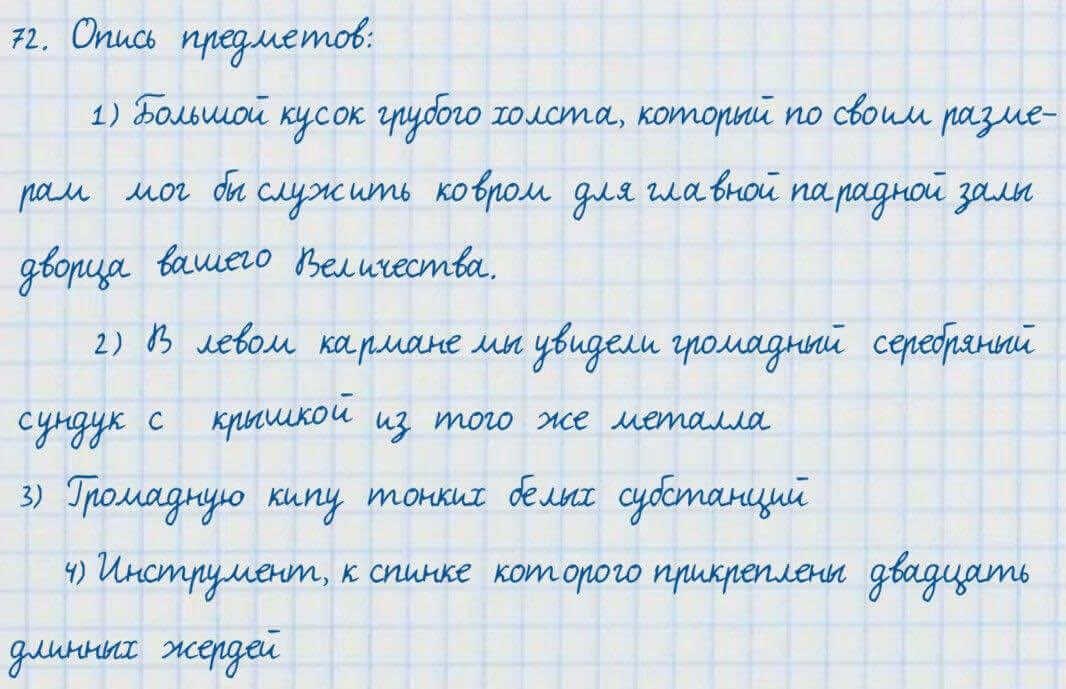 72. Опись предметов:
1) Большой кусок грубого холста, который по своим разме-
рам мог бы служить ковром для главной парадной залы
дворца вашего Величества.
2) В левом кармане мы увидели громадный серебряный
сундук с крышкой из того же металла
3) Громадную кипу тонких белых субстанций
4) Инструмент, к спинке которого прикреплены двадцать
длинных жердей